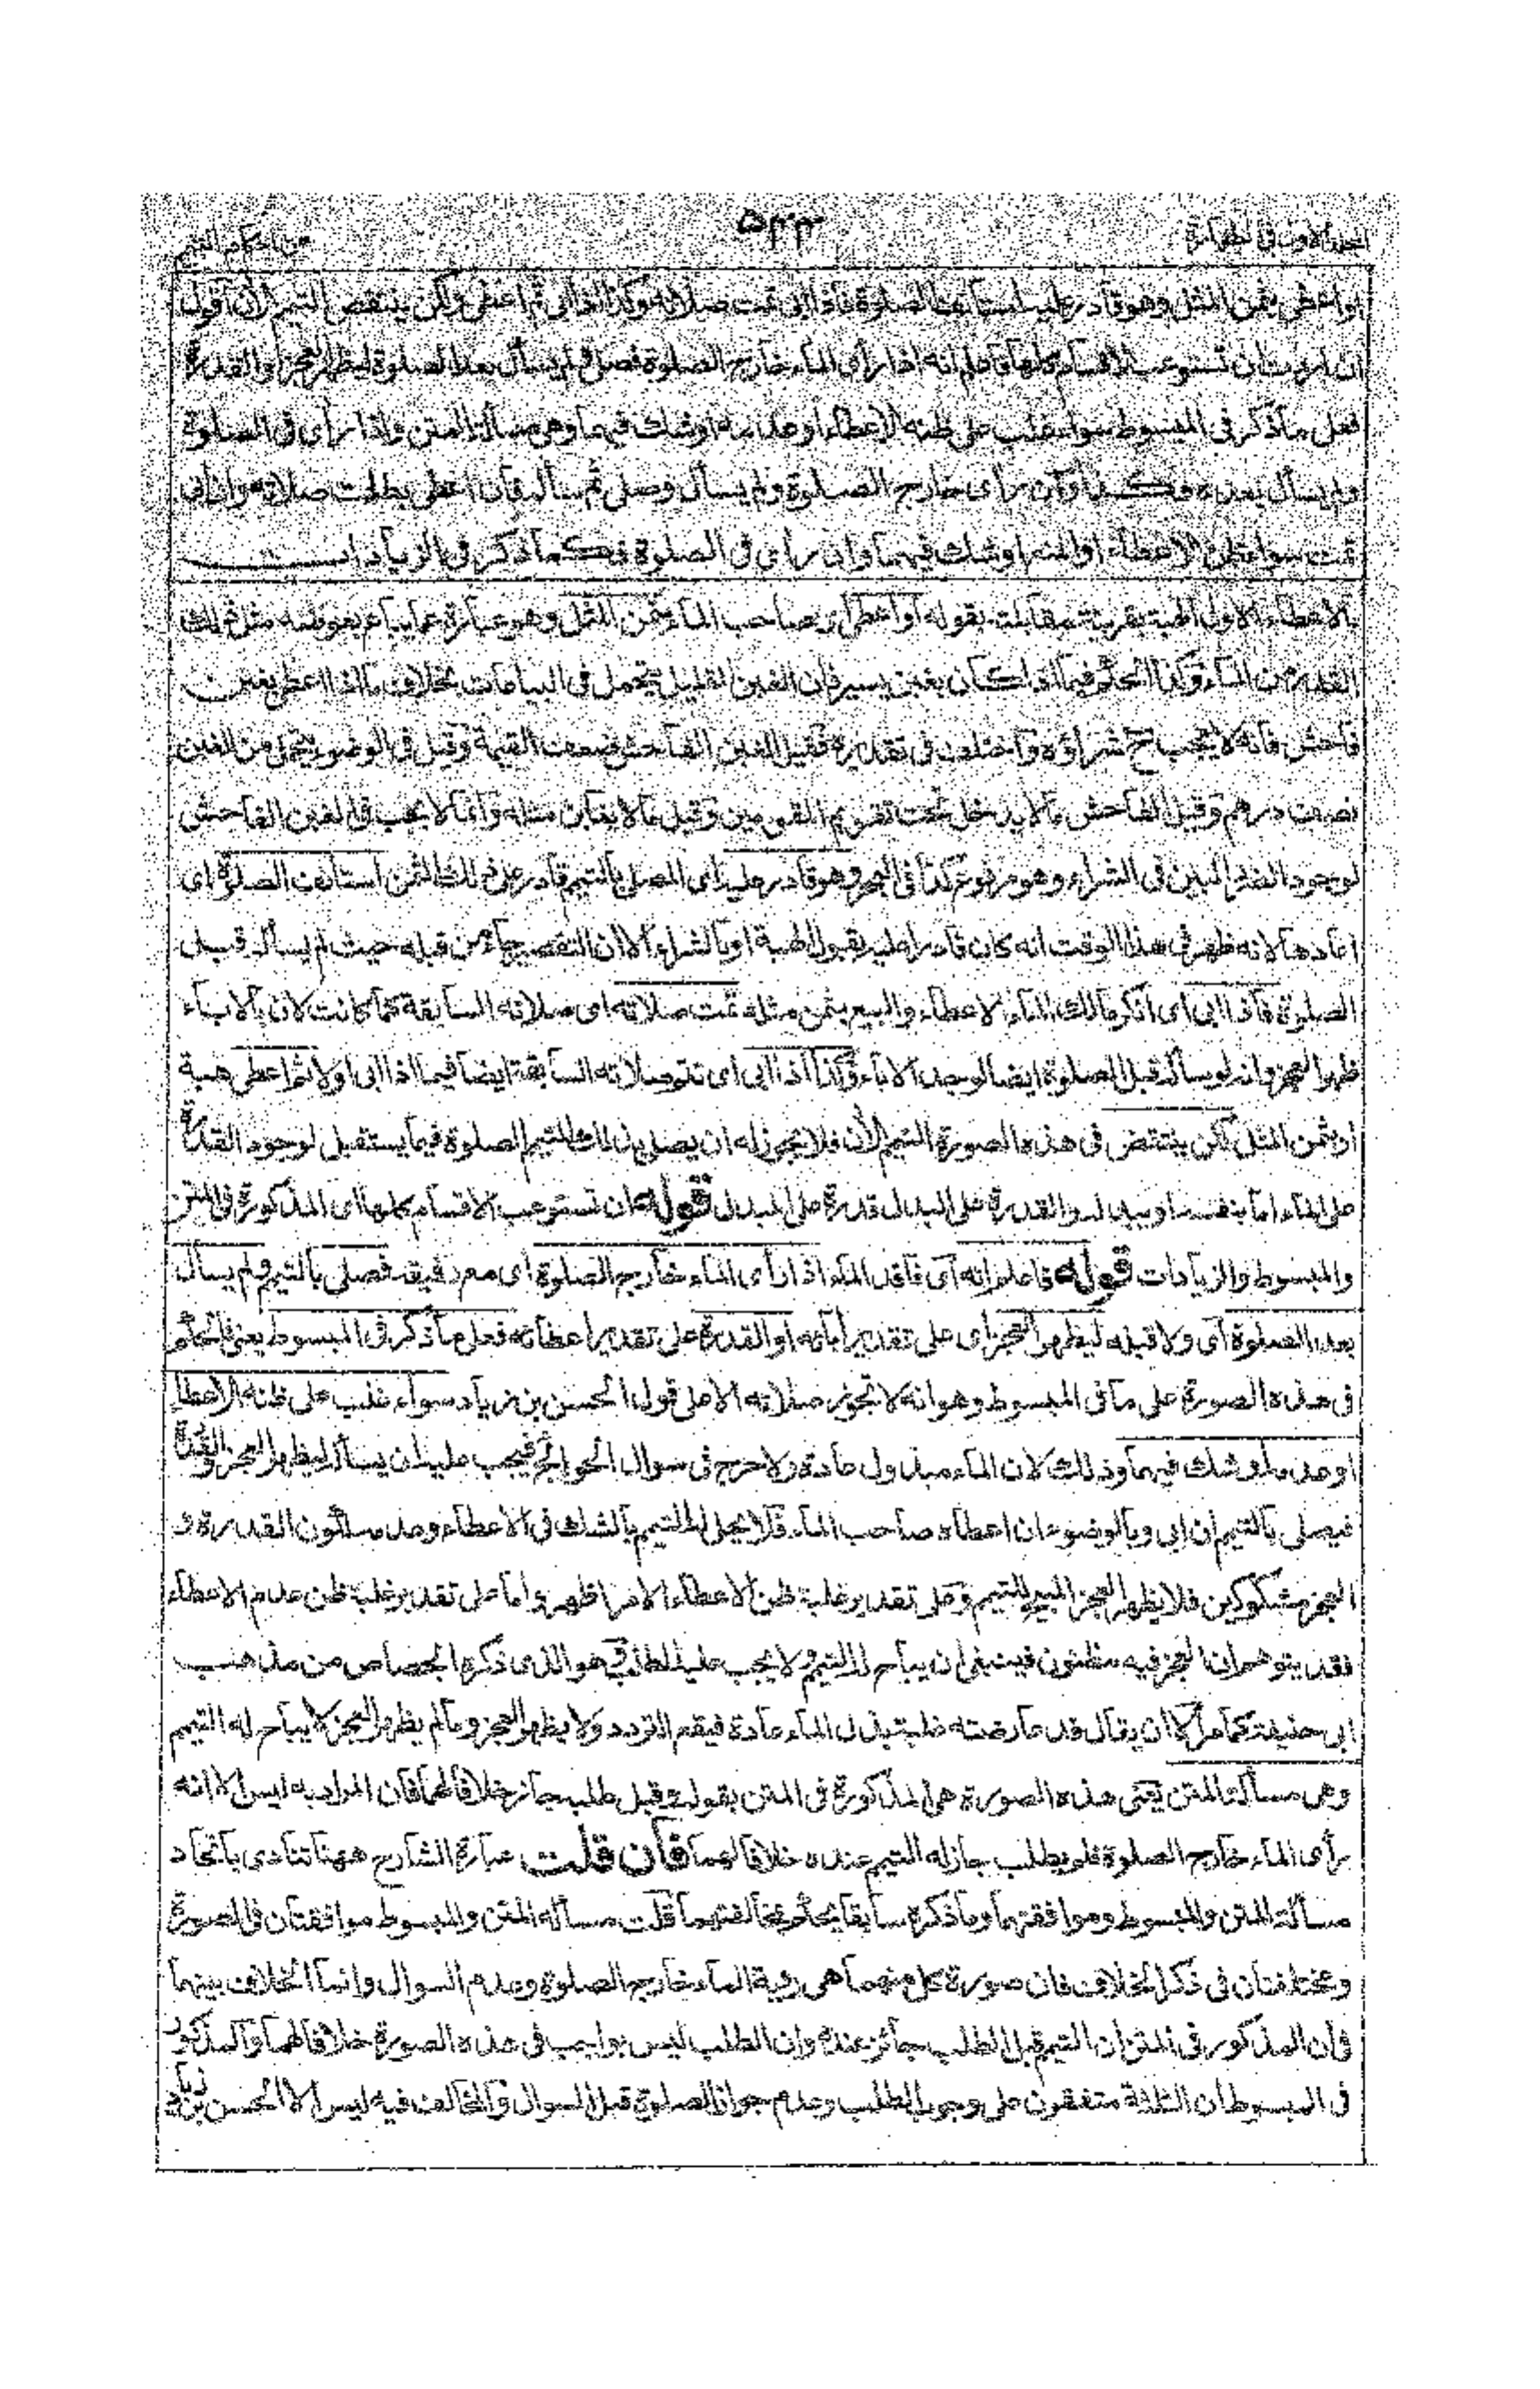 او اعطى بثمن المثل وهو قادر عليه استأنف الصلوة فاذا ابى تمت صلاته وكذا اذا ابى ثم اعطى ولكن ينتقض التيمم الآن اقول
ان اردت ان تستوعب الاقسام كلها فاعلم انه اذا رأى الماء خارج الصلوة فصلى ولم يسأل بعد الصلوة ليظهر العجز او القدرة
فعلى ما ذكر فى المبسوط سواء غلب على ظنه الاعطاء او عدمه او شك فيهما وهى مسألة المتن واذا رأى فى الصلوة
ولم يسأل بعده فكذا وان رأى خارج الصلوة ولم يسأل وصلى ثم سأله فان اعطى بطلت صلاته وان ابى
تمت سواء ظن الاعطاء او المنع او شك فيهما وان رأى فى الصلوة فكما ذكر فى الزيادات
بالاعطاء الاول الهبة بقرينة مقابلته بقوله او اعطى صاحب الماء بثمن المثل وهو عبارة عما يباع بعوضه مثل ذلك
القدر من الماء وكذا الحكم فيما اذا كان بغبن يسير فان الغبن القليل يتحمل فى البياعات بخلاف ما اذا اعطى بغبن
فاحش فانه لا يجب ح شراؤه واختلف فى تقديره فقيل الغبن الفاحش ضعف القيمة وقيل فى الوضوء يتحمل من الغبن
نصف درهم وقيل الفاحش ما لا يدخل تحت تقويم المقومين وقيل ما لا يتغابن مثله وانما لا يجب فى الغبن الفاحش
لوجود الضرر المبين فى الشراء وهو مرفوع كذا فى البحر وهو قادر عليه اى المصلى بالتيمم قادر على ذلك الثمن استأنف الصلوة اى
اعادها لانه ظهر فى هذا الوقت انه كان قادرا عليه بقبول الهبة او بالشراء الا ان التقصير جاء من قبله حيث لم يسأله قبل
الصلوة فاذا ابى اى انكر مالك الماء الاعطاء والبيع بثمن مثله تمت صلاته اى صلاته السابقة كما كانت لان بالاباء
ظهر العجز وانه لو سأله قبل الصلوة ايضا لوجد الاباء وكذا اذا ابى اى تتم صلاته السابقة ايضا فيما اذا ابى اولا ثم اعطى هبة
او بثمن المثل لكن ينتقض فى هذه الصورة التيمم الآن فلا يجوز له ان يصلى بذلك التيمم الصلوة فيما يستقبل لوجود القدرة
على الماء اما بنفسه او ببدله والقدرة على البدل قدرة على المبدل قوله ان تستوعب الاقسام كلها اى المذكورة فى المتن
والمبسوط والزيادات قوله فاعلم انه اى فاقد الماء اذا رأى الماء خارج الصلوة اى مع رفيقه فصلى بالتيمم ولم يسأل
بعد الصلوة اى ولا قبله ليظهر العجز اى على تقدير ابائه او القدرة على تقدير اعطائه فعلى ما ذكر فى المبسوط يعنى فالحكم
فى هذه الصورة على ما فى المبسوط وهو انه لا تجوز صلاته الا على قول الحسن بن زياد سواء غلب على ظنه الاعطاء
او عدمه او شك فيهما وذلك لان الماء مبذول عادة ولا حرج فى سوال الحوائج فيجب عليه ان يسأل ليظهر العجز او القدرة
فيصلى بالتيمم ان ابى وبالوضوء ان اعطاه صاحب الماء فلا يحل له التيمم بالشك فى الاعطاء وعدمه لكون القدرة و
العجز مشكوكين فلا يظهر العجز المبيح للتيمم وعلى تقدير غلبة ظن الاعطاء الامر اظهر واما على تقدير غلبة ظن عدم الاعطاء
فقد يتوهم ان العجز فيه مظنون فينبغى ان يباح له التيمم ولا يجب عليه الطلب وهو الذى ذكره الجصاص من مذهب
ابى حنيفة كما مر الا ان يقال قد عارضته غلبة بذل الماء عادة فيقع التردد ولا يظهر العجز وما لم يظهر العجز لا يباح له التيمم
وهى مسألة المتن يعنى هذه الصورة هى المذكورة فى المتن بقوله وقبل طلبه جاز خلافا لهما فان المراد به ليس الا انه
رأى الماء خارج الصلوة فلم يطلب جاز له التيمم عنده خلافا لهما فان قلت عبارة الشارح ههنا تنادى باتحاد
مسألة المتن والمبسوط وموافقتهما وما ذكره سابقا يحكم بمخالفتهما قلت مسألة المتن والمبسوط موافقتان فى الصورة
ومختلفتان فى ذكر الخلاف فان صورة كل منهما هى روية الماء خارج الصلوة وعدم السوال وانما الخلاف بينهما
فان المذكور فى المتن ان التيمم قبل الطلب جائز عنده وان الطلب ليس بواجب فى هذه الصورة خلافا لهما والمذكور
فى المبسوط ان الثلثة متفقون على وجوب الطلب وعدم جواز الصلوة قبل السوال والمخالف فيه ليس الا الحسن بن زياد